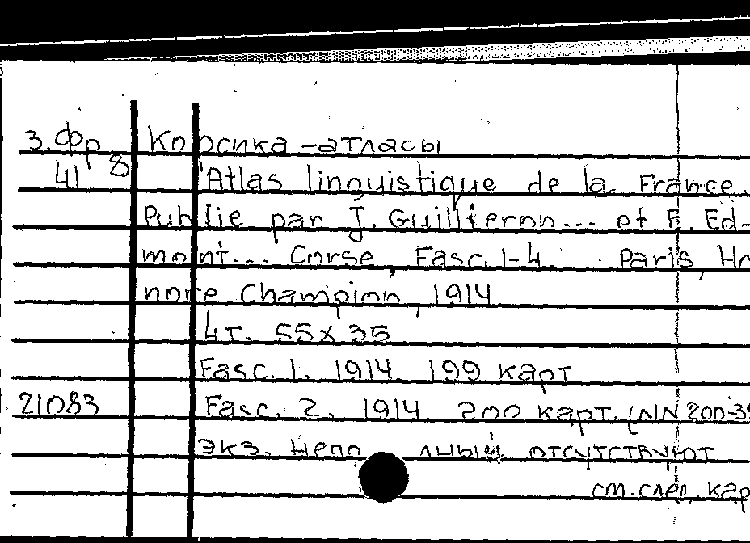 З.Фр Корсика - атласы
41 8 Atlas linguistique de la France.
Publie par J. Guilliéron... et E. Ed-
mont... Corse, Fasc. 1-4. Paris, Ho
nore Champion, 1914
4т. 55х35
Fasc. 1. 1914. 199 карт
21083 Fasc. 2. 1914 200 карт. (NN 200-39
экз. непо лный отсутствуют
см. след. кар